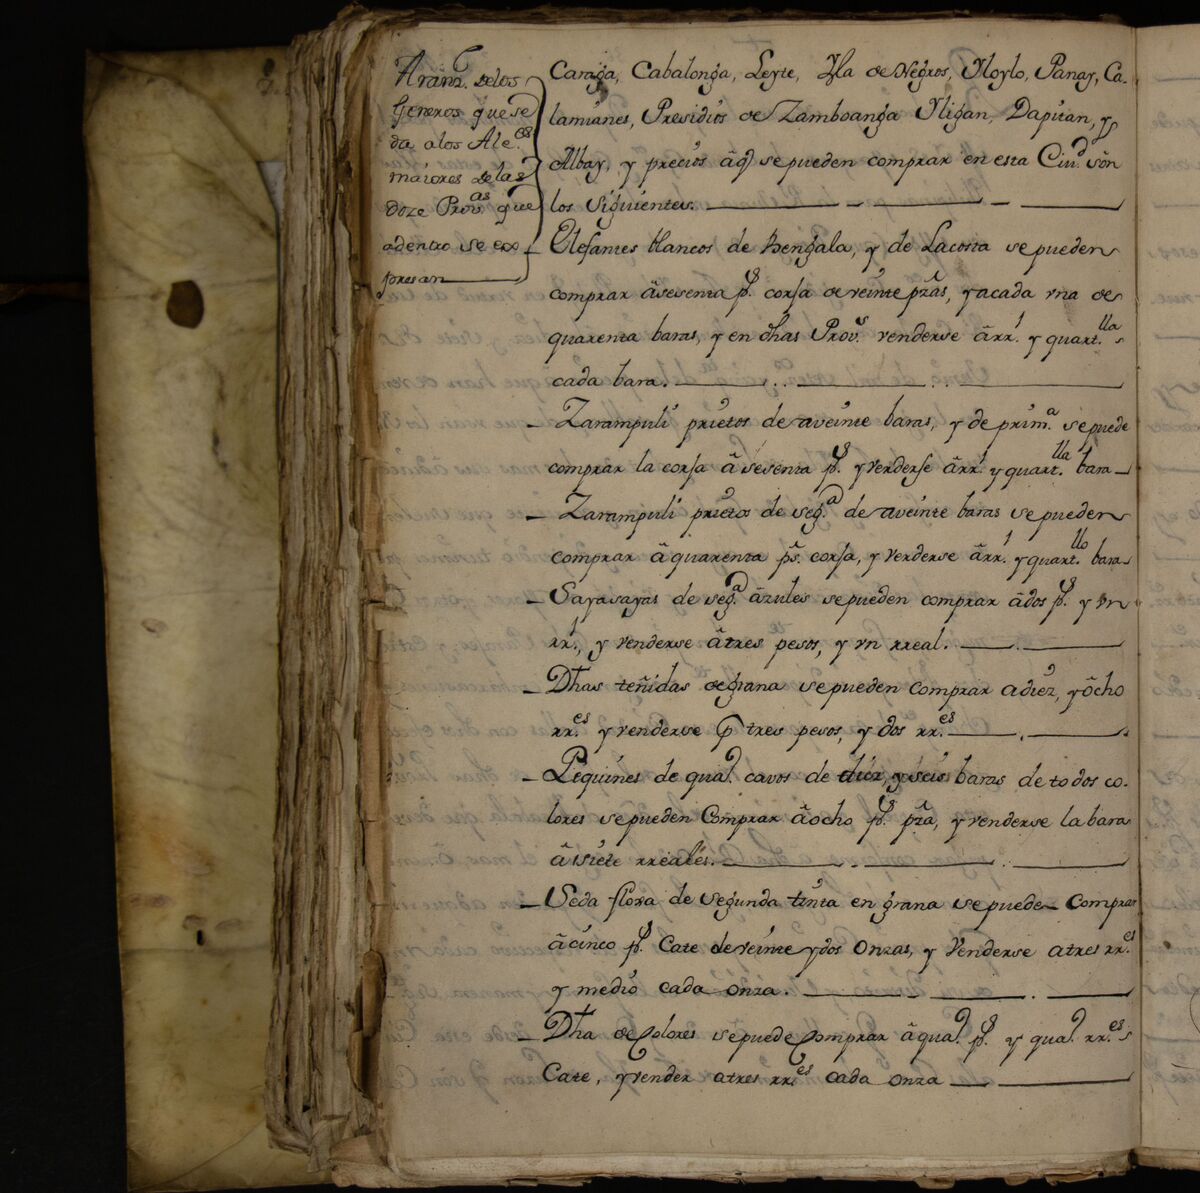 Aranz. delos
Generos que se
da alos Alc.es
maiores de las
doze Prov.as que
adentro se ex
presan
Caraga, Cabalonga, Leyte, Ysla de Negros, Yloylo, Panay, Ca-
lamianes, Presidios de Zamboanga Yligan, Dapitan, y
Albay, y precios âq se pueden comprar en esta Ciud son
los siguientes.
Elefantes blancos de Bengala, y de Lacosta se pueden
comprar âsesenta p.s corja de veinte pzâs, y acada vna de
quarenta baras, y en dhas Prov.s venderse ârr.l y quart.lla
cada bara.
Zarampuli prietos de aveinte baras, y de prim.a se puede
comprar la corja â sesenta p.s y venderse ârr.l y quart.lla bara
Zarampuli prietos de seg.a de aveinte baras se pueden
comprar âquarenta p.s corja, y venderse ârr.l y quart.llo bara
Sayasayas de seg.a âzules se pueden comprar âdos p.s y vn
rr.l, y venderse âtres pesos, y vn rreal.
Dhas teñidas de grana se pueden comprar a diez, y ôcho
rr.es y venderse p tres pesos, y dos rr.es
Pequines de qua.o cavos de diez, y seis baras de todos co-
lores se pueden Comprar âocho p.s pzâ, y venderse la bara
â siete rreales.
Seda floxa de segunda tinta en grana se puede Comprar
âcinco p.s Cate de veinte y dos Onzas, y Venderse atres rr.es
y medio cada onza.
Dha de Colores se puede Comprar âqua.o p.s y qua.o rr.es
Cate, y vender atres rr.es cada onza